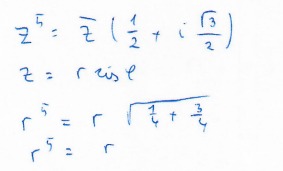 z⁵ = z̅ (1/2 + i √3/2)
z = r cis φ
r⁵ = r √(1/4 + 3/4)
r⁵ = r